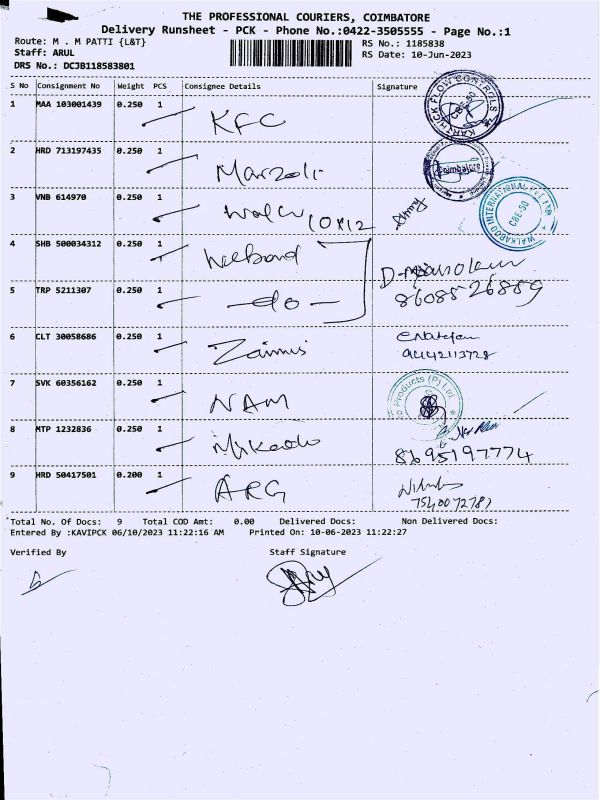 THE PROFESSIONAL COURIERS, COIMBATORE
Delivery Runsheet - PCK - Phone No.:0422-3505555 - Page No.:1
Route: M . M PATTI {L&T}
RS No.: 1185838
Staff: ARUL
RS Date: 10-Jun-2023
DRS No.: DCJB118583801
S No Consignment No Weight PCS Consignee Details Signature
1 MAA 103001439 0.250 1 KFC
KARTHICK FLOW CONTROLS CBE-50
2 HRD 713197435 0.250 1 Marzoli
Coimbatore
3 VNB 614970 0.250 1
WALKAROO INTERNATIONAL PVT LTD CBE-50
4 SHB 500034312 0.250 1
8608526889
5 TRP 5211307 0.250 1 — do —
6 CLT 30058686 0.250 1
7 SVK 60356162 0.250 1 NAM
Products (P) Ltd
8 MTP 1232836 0.250 1
8695197774
9 HRD 50417501 0.200 1 ARG
Total No. Of Docs: 9 Total COD Amt: 0.00 Delivered Docs: Non Delivered Docs:
Entered By :KAVIPCK 06/10/2023 11:22:16 AM Printed On: 10-06-2023 11:22:27
Verified By Staff Signature